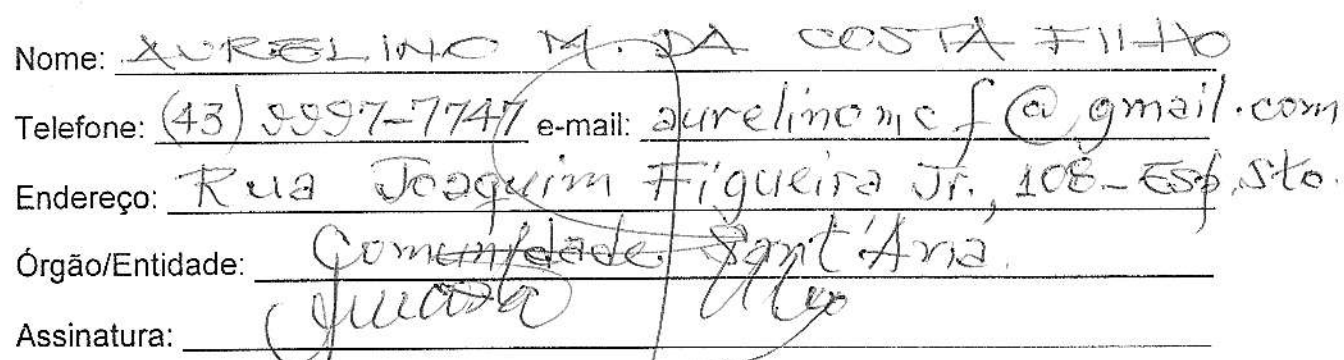 Nome: AURELINO M. DA COSTA FILHO
Telefone: (43) 9997-7747 e-mail: aurelinomcf@gmail.com
Endereço: Rua Joaquim Figueira Jr., 108 - Esp. Sto.
Órgão/Entidade: Comunidade Sant'Ana.
Assinatura: